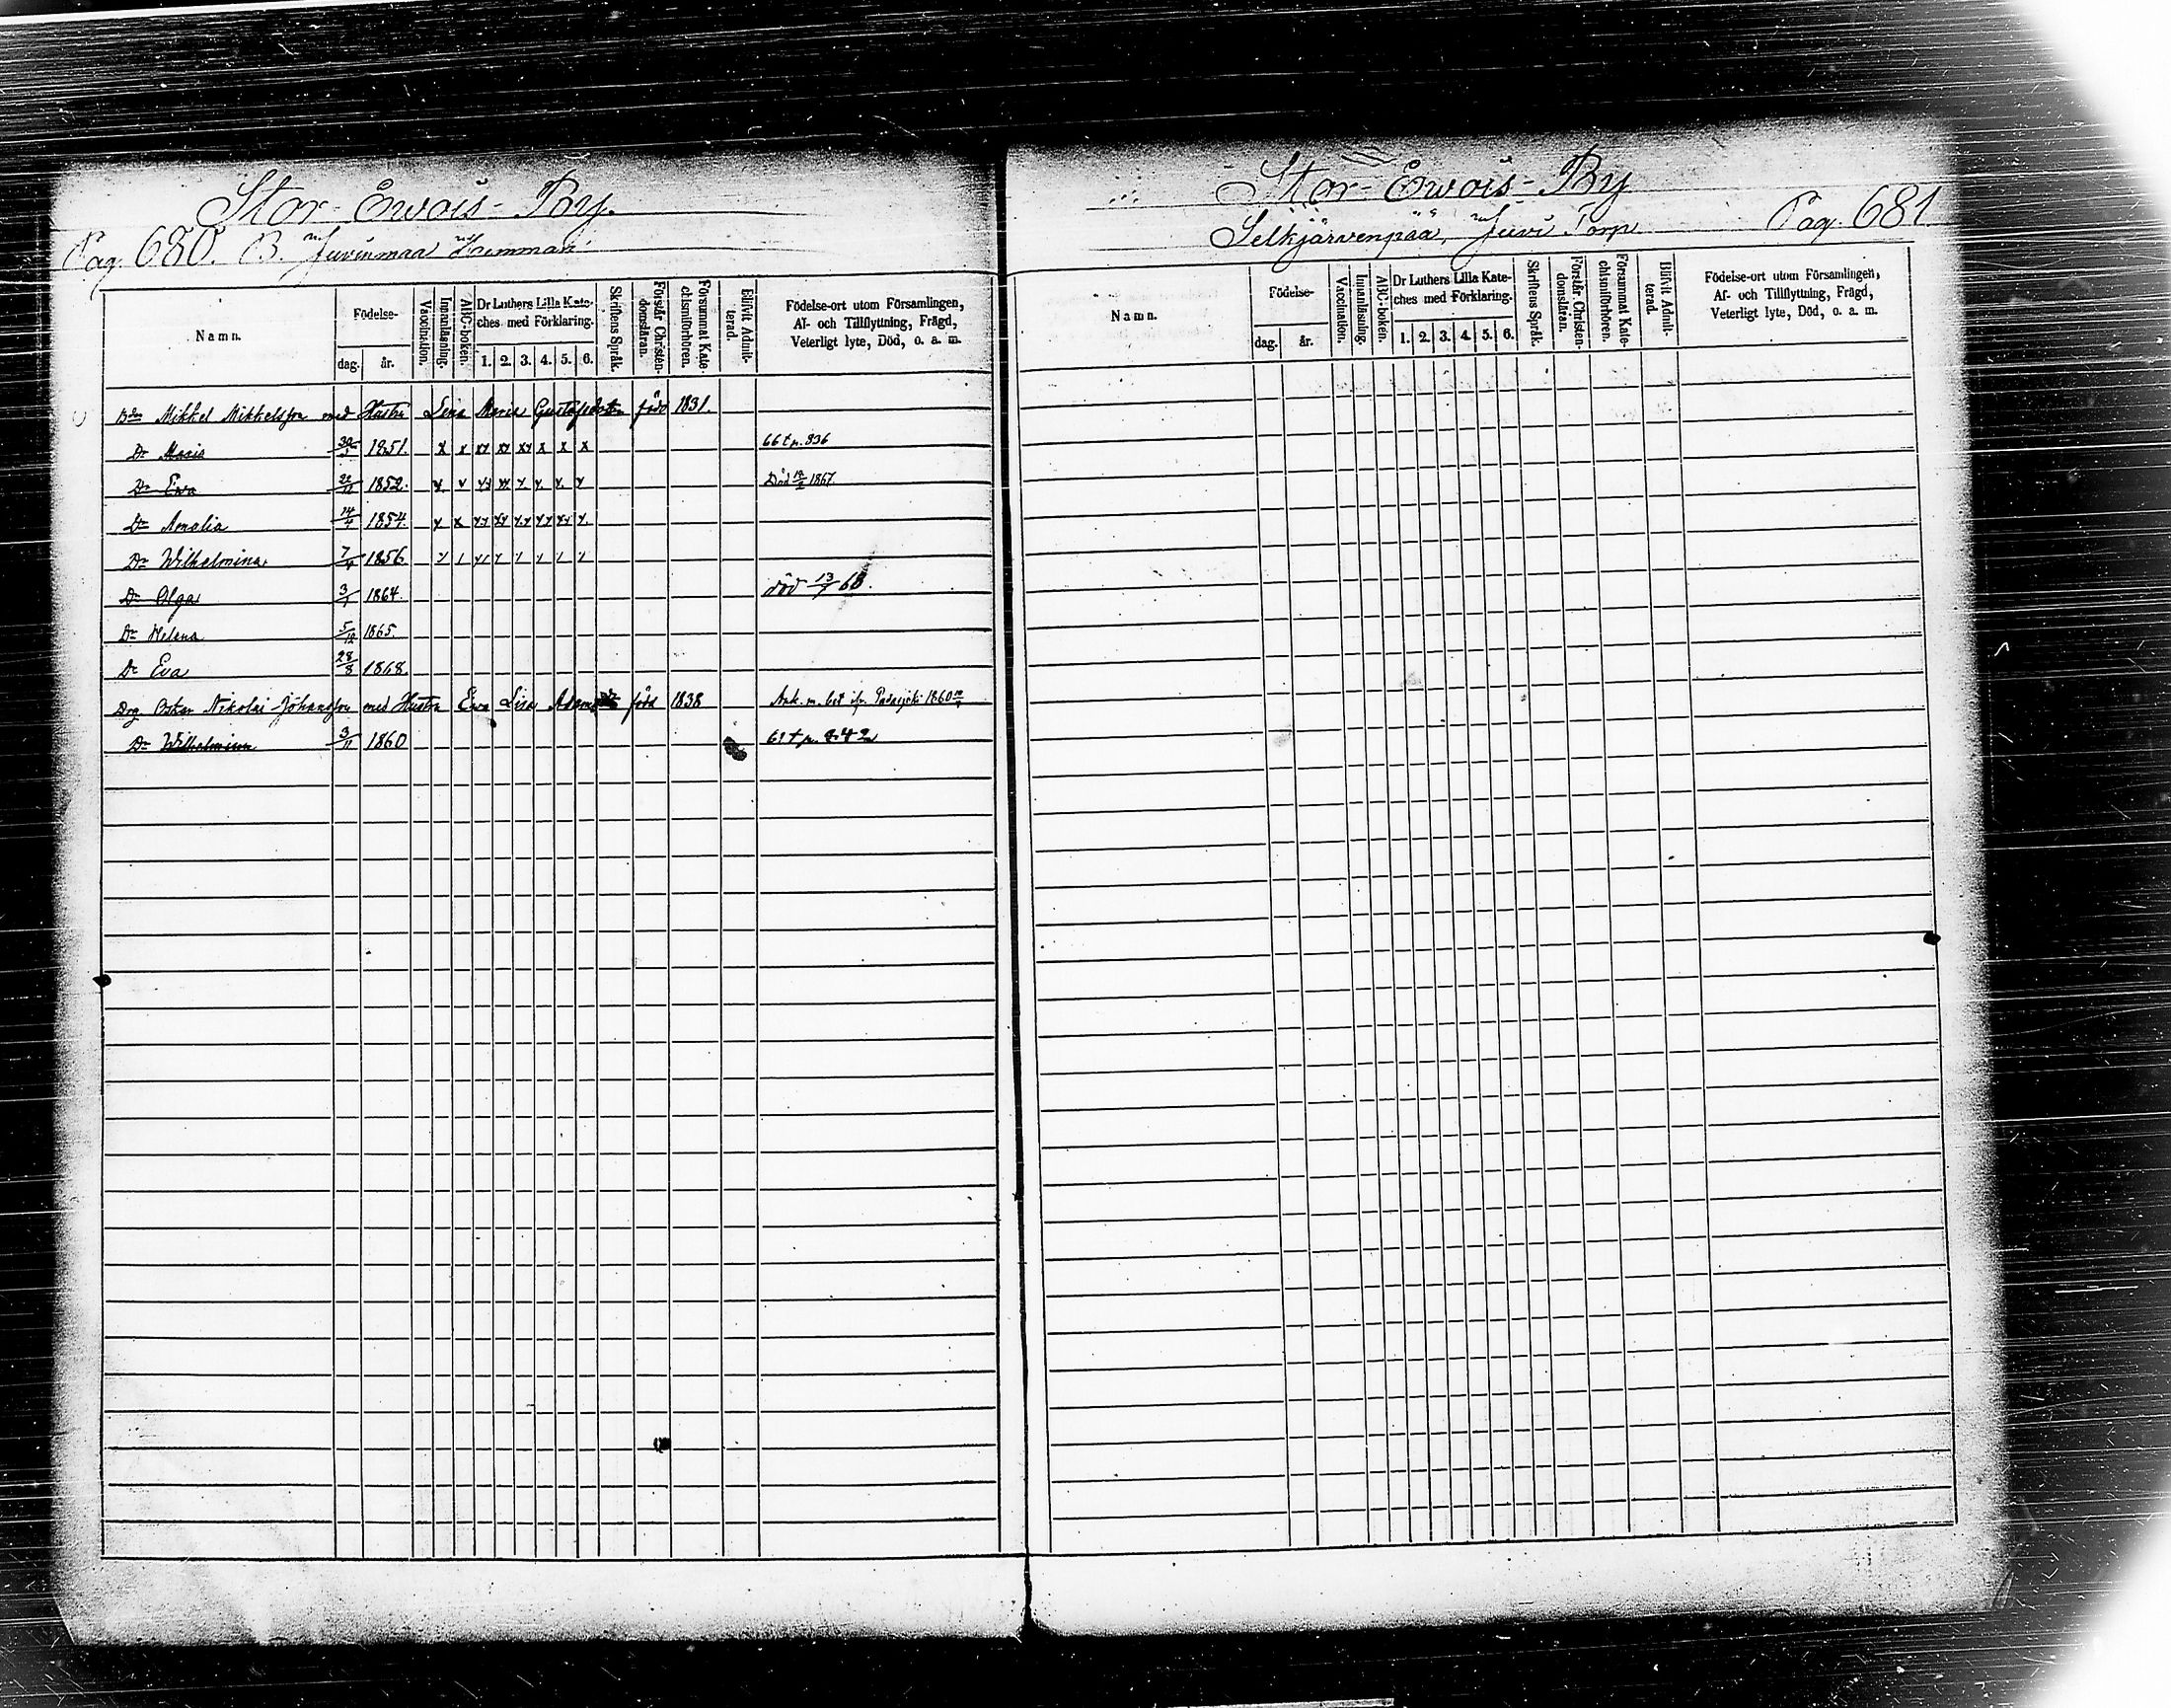 Stor-Ewois-By.
Pag. 680. B. Juvinmaa Hemman
Namn. Födelse- dag. år. Vaccination. Innanläsning. ABC-boken. Dr Luthers Lilla Kate-ches med Förklaring. 1. 2. 3. 4. 5. 6. Skriftens Språk. Förstår Christen-domsläran. Försummat Kate-chismiförhören. Blifvit Admit-terad. Födelse-ort utom Församlingen, Af- och Tillflyttning, Frägd, Veterligt lyte, Död, o. a. m.
Bdn Mikkel Mikkelsson med Hustru Lena Maria Gustafsdotr född 1831.
Dr Maria 30/ 1851. x x xx xx xx x x x 66 t p. 836
Dr Ewa 1852. Död 1867.
Dr Amalia 14/4 1854.
Dr Wilhelmina 7/ 1856.
Dr Olga 3/1 1864. död 13/7 68.
Dr Helena 5/12 1865.
Dr Eva 28/8 1868.
Drg Oskar Nikolai Johansson med Hustru Ewa Lisa Adamsdr född 1838 Ank. m. bet ifr. Padasjoki 1860
Dr Wilhelmina 3/11 1860 61 t p. 842
Stor-Ewois-By
Selkjärvenpää, Juvi Torp Pag. 681.
Namn. Födelse- dag. år. Vaccination. Innanläsning. ABC-boken. Dr Luthers Lilla Kate-ches med Förklaring. 1. 2. 3. 4. 5. 6. Skriftens Språk. Förstår Christen-domsläran. Försummat Kate-chismiförhören. Blifvit Admit-terad. Födelse-ort utom Församlingen, Af- och Tillflyttning, Frägd, Veterligt lyte, Död, o. a. m.